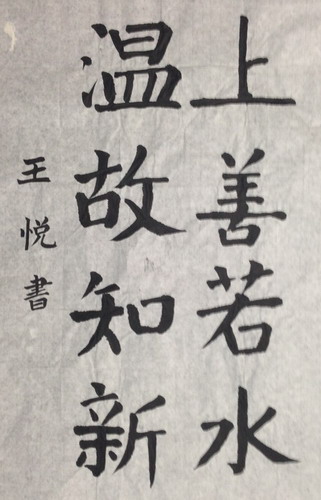 上善若水
温故知新
王悦書